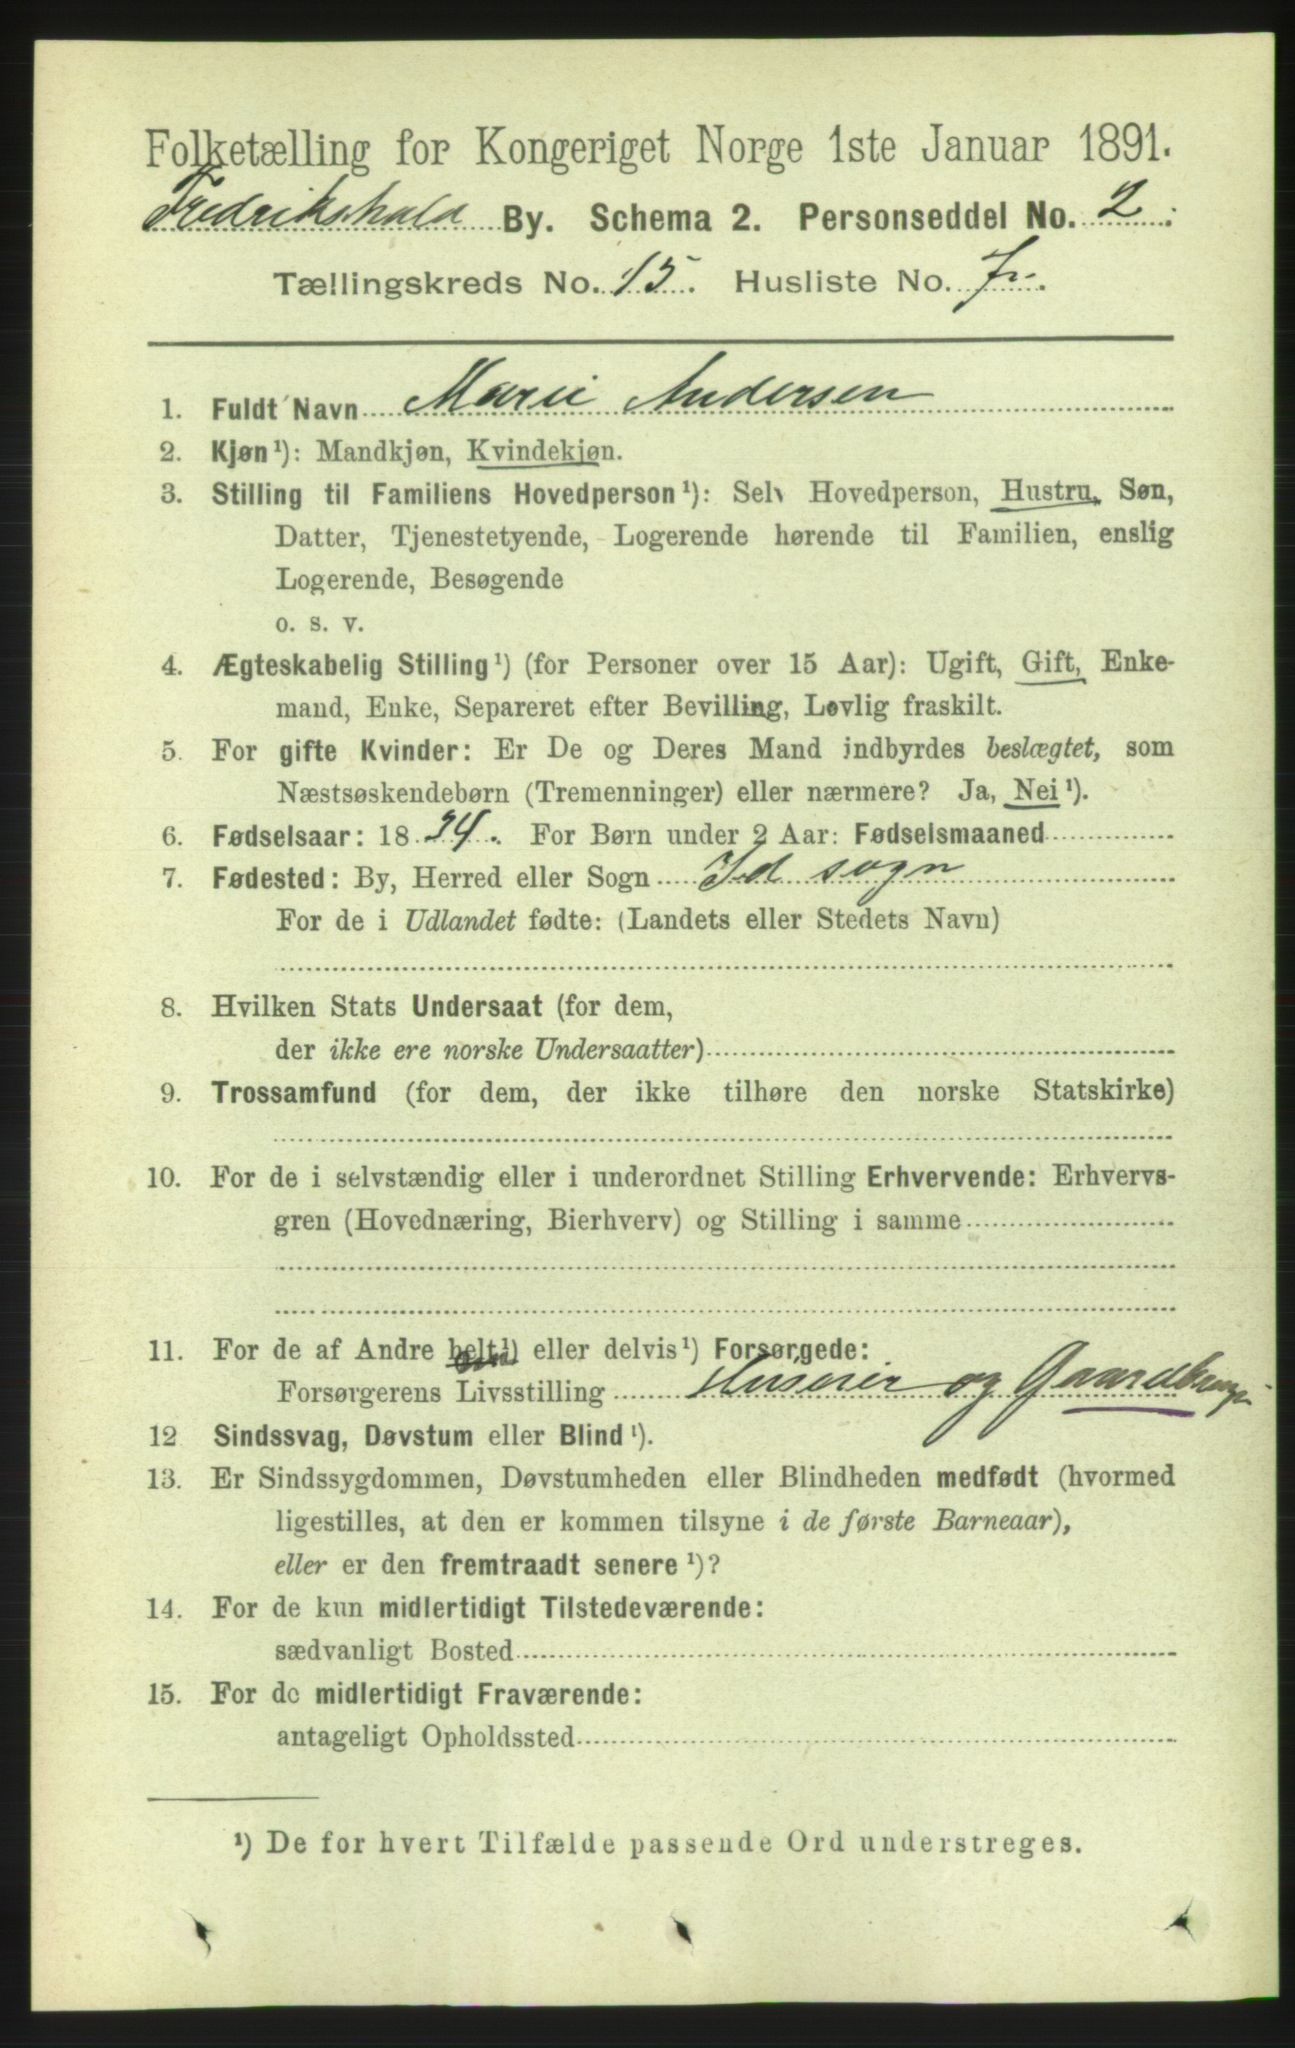 Folketælling for Kongeriget Norge 1ste Januar 1891.
Fredrikshald By. Schema 2. Personseddel No. 2.
Tællingskreds No. 15. Husliste No. 7.
1. Fuldt Navn Marie Andersen
2. Kjøn¹): Mandkjøn, Kvindekjøn.
3. Stilling til Familiens Hovedperson¹): Selv Hovedperson, Hustru, Søn,
Datter, Tjenestetyende, Logerende hørende til Familien, enslig
Logerende, Besøgende
o. s. v.
4. Ægteskabelig Stilling¹) (for Personer over 15 Aar): Ugift, Gift, Enke-
mand, Enke, Separeret efter Bevilling, Lovlig fraskilt.
5. For gifte Kvinder: Er De og Deres Mand indbyrdes beslægtet, som
Næstsøskendebørn (Tremenninger) eller nærmere? Ja, Nei¹).
6. Fødselsaar: 1834. For Børn under 2 Aar: Fødselsmaaned
7. Fødested: By, Herred eller Sogn Id sogn
For de i Udlandet fødte: (Landets eller Stedets Navn)
8. Hvilken Stats Undersaat (for dem,
der ikke ere norske Undersaatter)
9. Trossamfund (for dem, der ikke tilhøre den norske Statskirke)
10. For de i selvstændig eller i underordnet Stilling Erhvervende: Erhvervs-
gren (Hovednæring, Bierhverv) og Stilling i samme
11. For de af Andre helt¹) eller delvis¹) Forsørgede:
Forsørgerens Livsstilling Huseier og Gaardbruger
12 Sindssvag, Døvstum eller Blind¹).
13. Er Sindssygdommen, Døvstumheden eller Blindheden medfødt (hvormed
ligestilles, at den er kommen tilsyne i de første Barneaar),
eller er den fremtraadt senere¹)?
14. For de kun midlertidigt Tilstedeværende:
sædvanligt Bosted
15. For de midlertidigt Fraværende:
antageligt Opholdssted
¹) De for hvert Tilfælde passende Ord understreges.